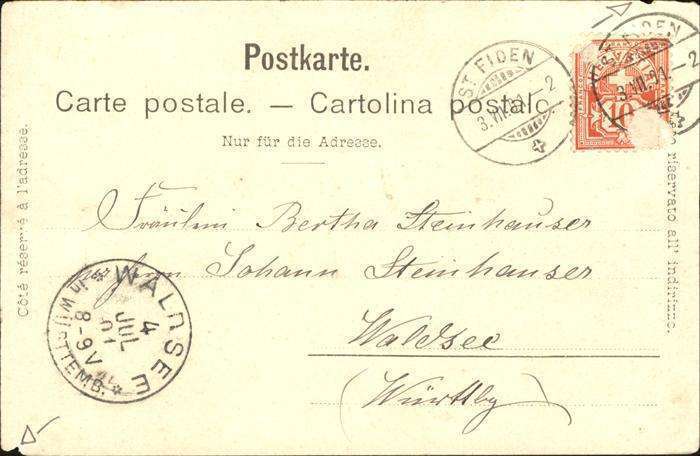 Postkarte.
Carte postale. — Cartolina postale
Nur für die Adresse.
Côté réservé à l'adresse.
riservato all' indirizzo.
ST. FIDEN
3.VII.01.-2
ST. FIDEN
3.VII.01.-2
10
Fräulein Bertha Steinhauser
Johann Steinhauser
Waldsee
(Württbg)
WALDSEE
4
JUL
01
8-9V
in WÜRTTEMB.